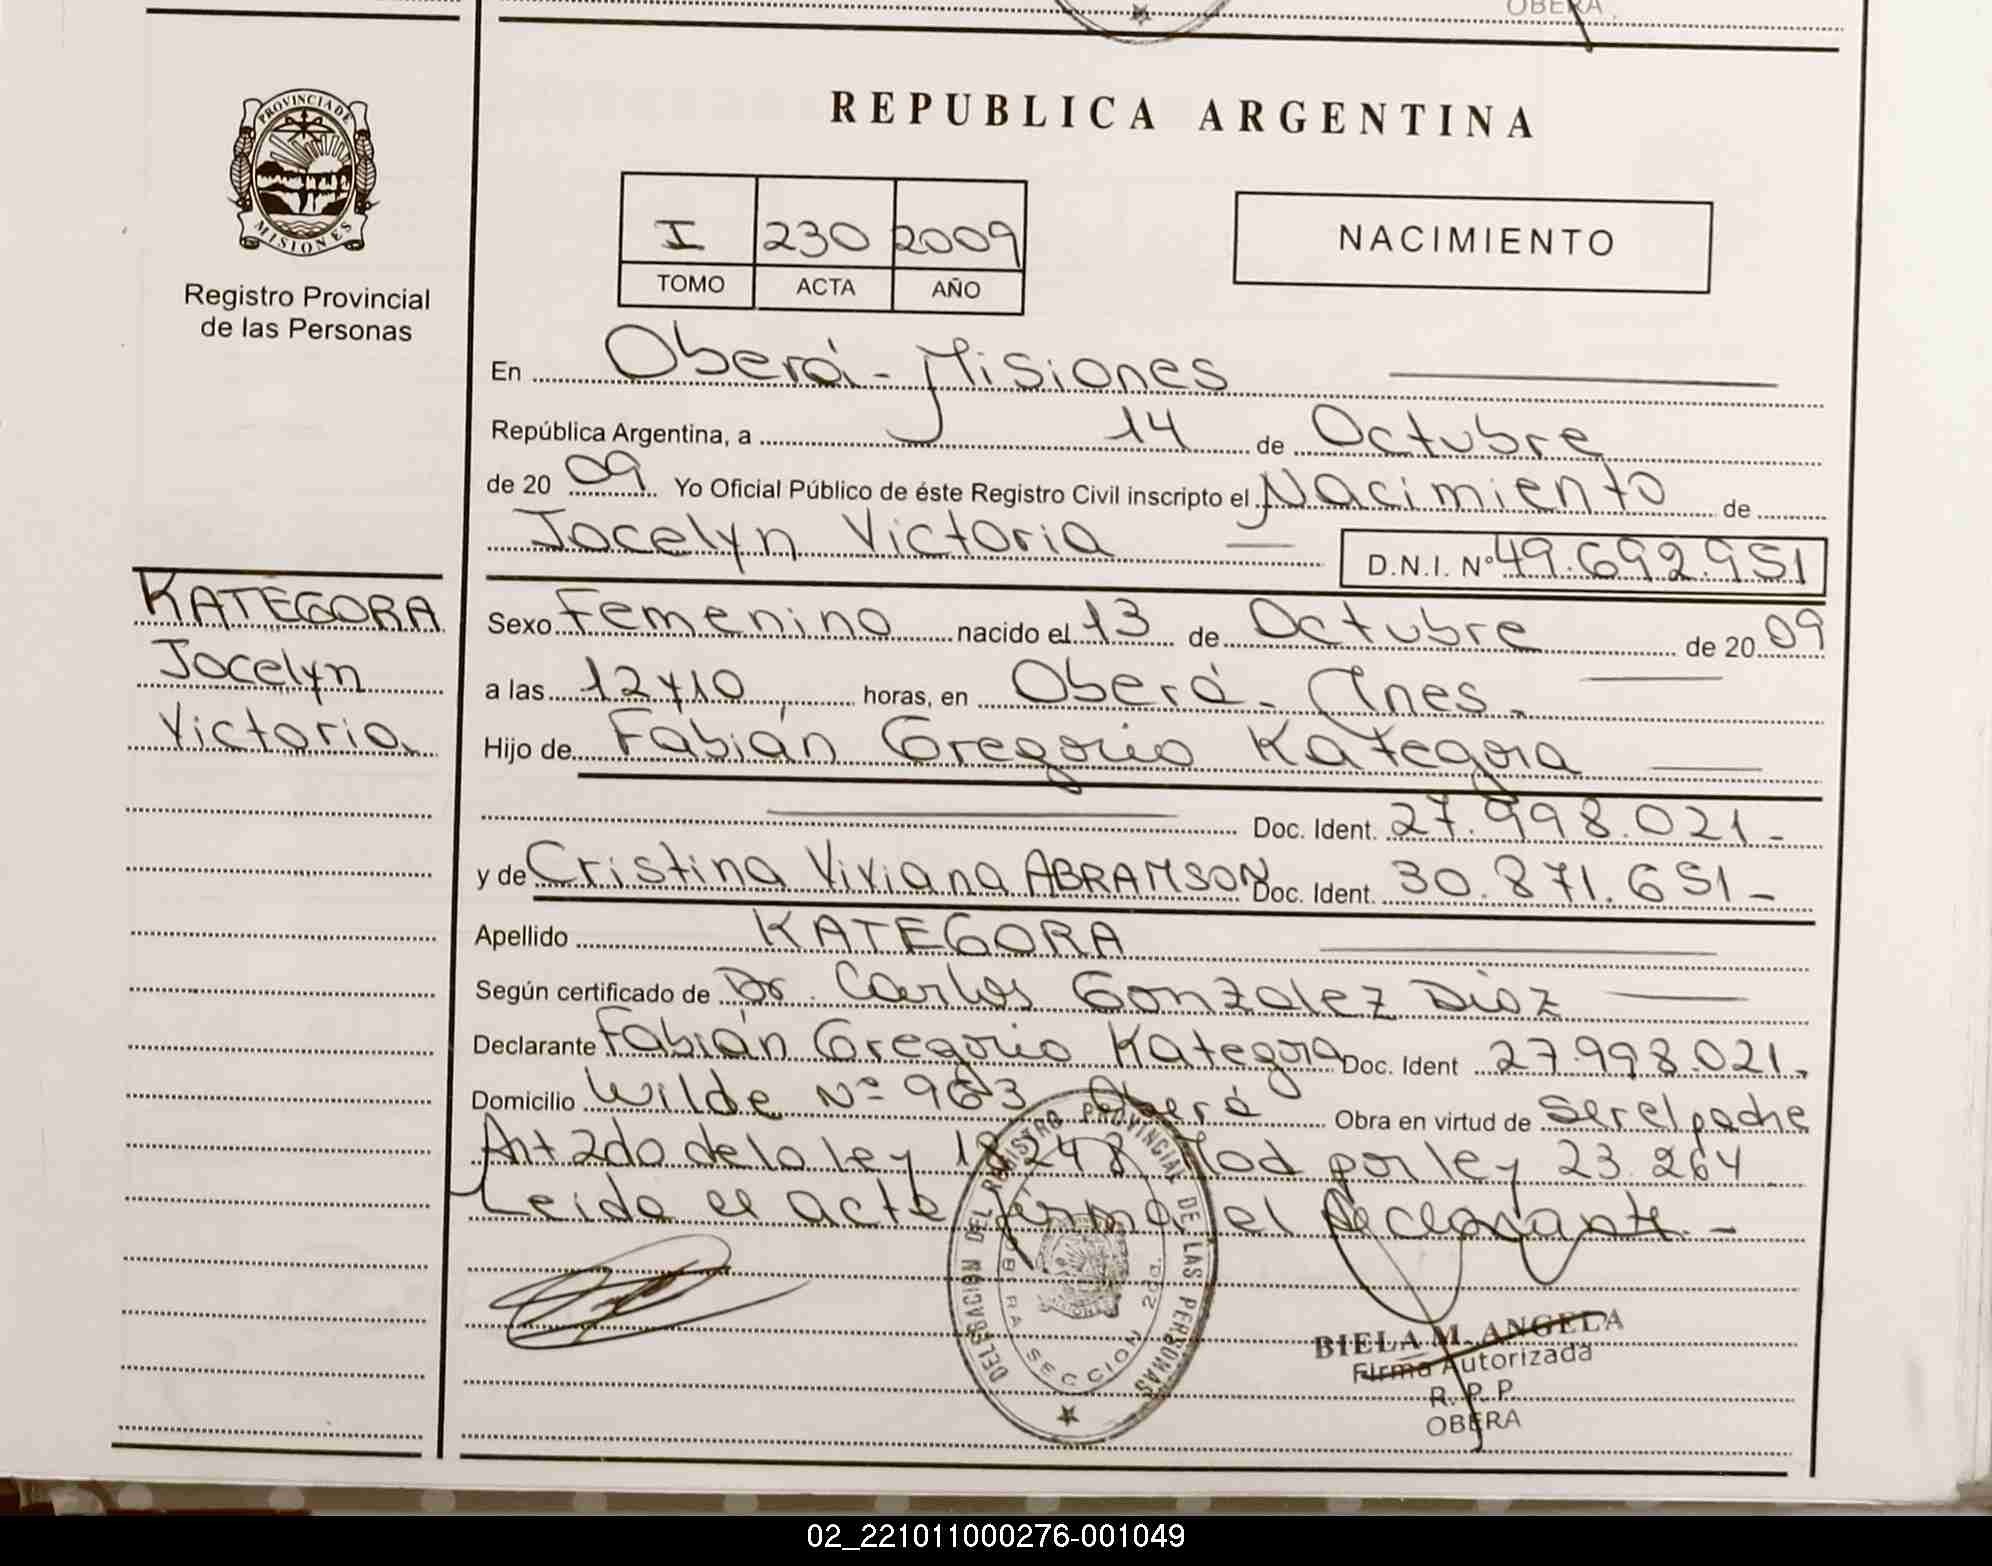 OBERA
REPUBLICA ARGENTINA
PROVINCIA DE
MISIONES
Registro Provincial
de las Personas
I 230 2009
TOMO ACTA AÑO
NACIMIENTO
En Oberá - Misiones
República Argentina, a 14 de Octubre
de 20 09 Yo Oficial Público de éste Registro Civil inscripto el Nacimiento de
Jocelyn Victoria D.N.I. Nº 49.692.951
KATEGORA
Jocelyn
Victoria
Sexo Femenino nacido el 13 de Octubre de 20 09
a las 12 y 10 horas, en Oberá - Mnes.
Hijo de Fabián Gregorio Kategora
Doc. Ident. 27.998.021-
y de Cristina Viviana ABRAMSON Doc. Ident. 30.871.651-
Apellido KATEGORA
Según certificado de Dr. Carlos Gonzalez Diaz
Declarante Fabián Gregorio Kategora Doc. Ident 27.998.021.
Domicilio Wilde Nº 963 Oberá Obra en virtud de ser el padre
Art 2do de la ley 18248 Mod por ley 23.264
Leida el acta firma el declarante -
DELEGACION DEL REGISTRO PROVINCIAL DE LAS PERSONAS
OBERA SECCION 2da.
BIELA M. ANGELA
Firma Autorizada
R. P. P.
OBERA
02_221011000276-001049